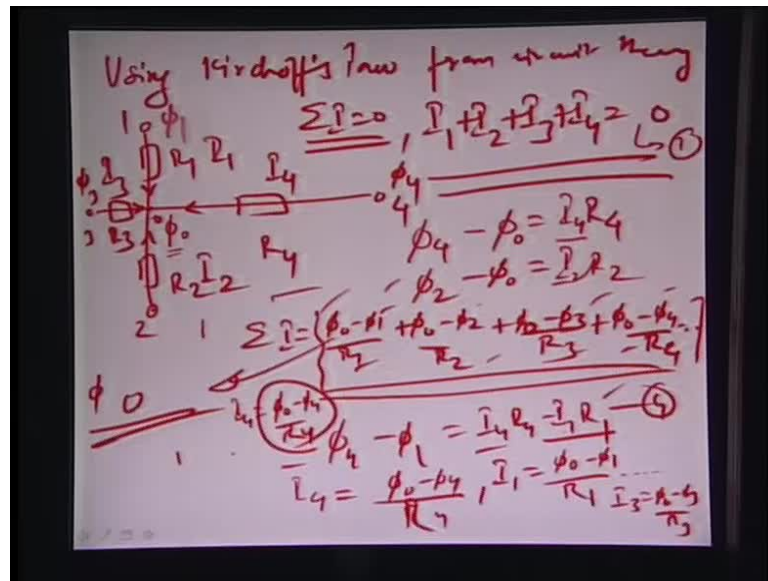 Using Kirchoff's law from circuit theory
1 φ1 ΣI=0, I1+I2+I3+I4=0
①
R1 I1 I4 φ4
φ3 I3 4
3 R3 φ0 φ4 - φ0 = I4R4
R2 I2 R4 φ2 - φ0 = I2R2
2 1 ΣI={φ0-φ1/R1 + φ0-φ2/R2 + φ0-φ3/R3 + φ0-φ4/R4}
φ0 I4=φ0-φ4/R4 φ4 - φ1 = I4R4 - I1R1 ④
1 I4 = φ0-φ4/R4, I1 = φ0-φ1/R1 ..... I3=φ0-φ3/R3